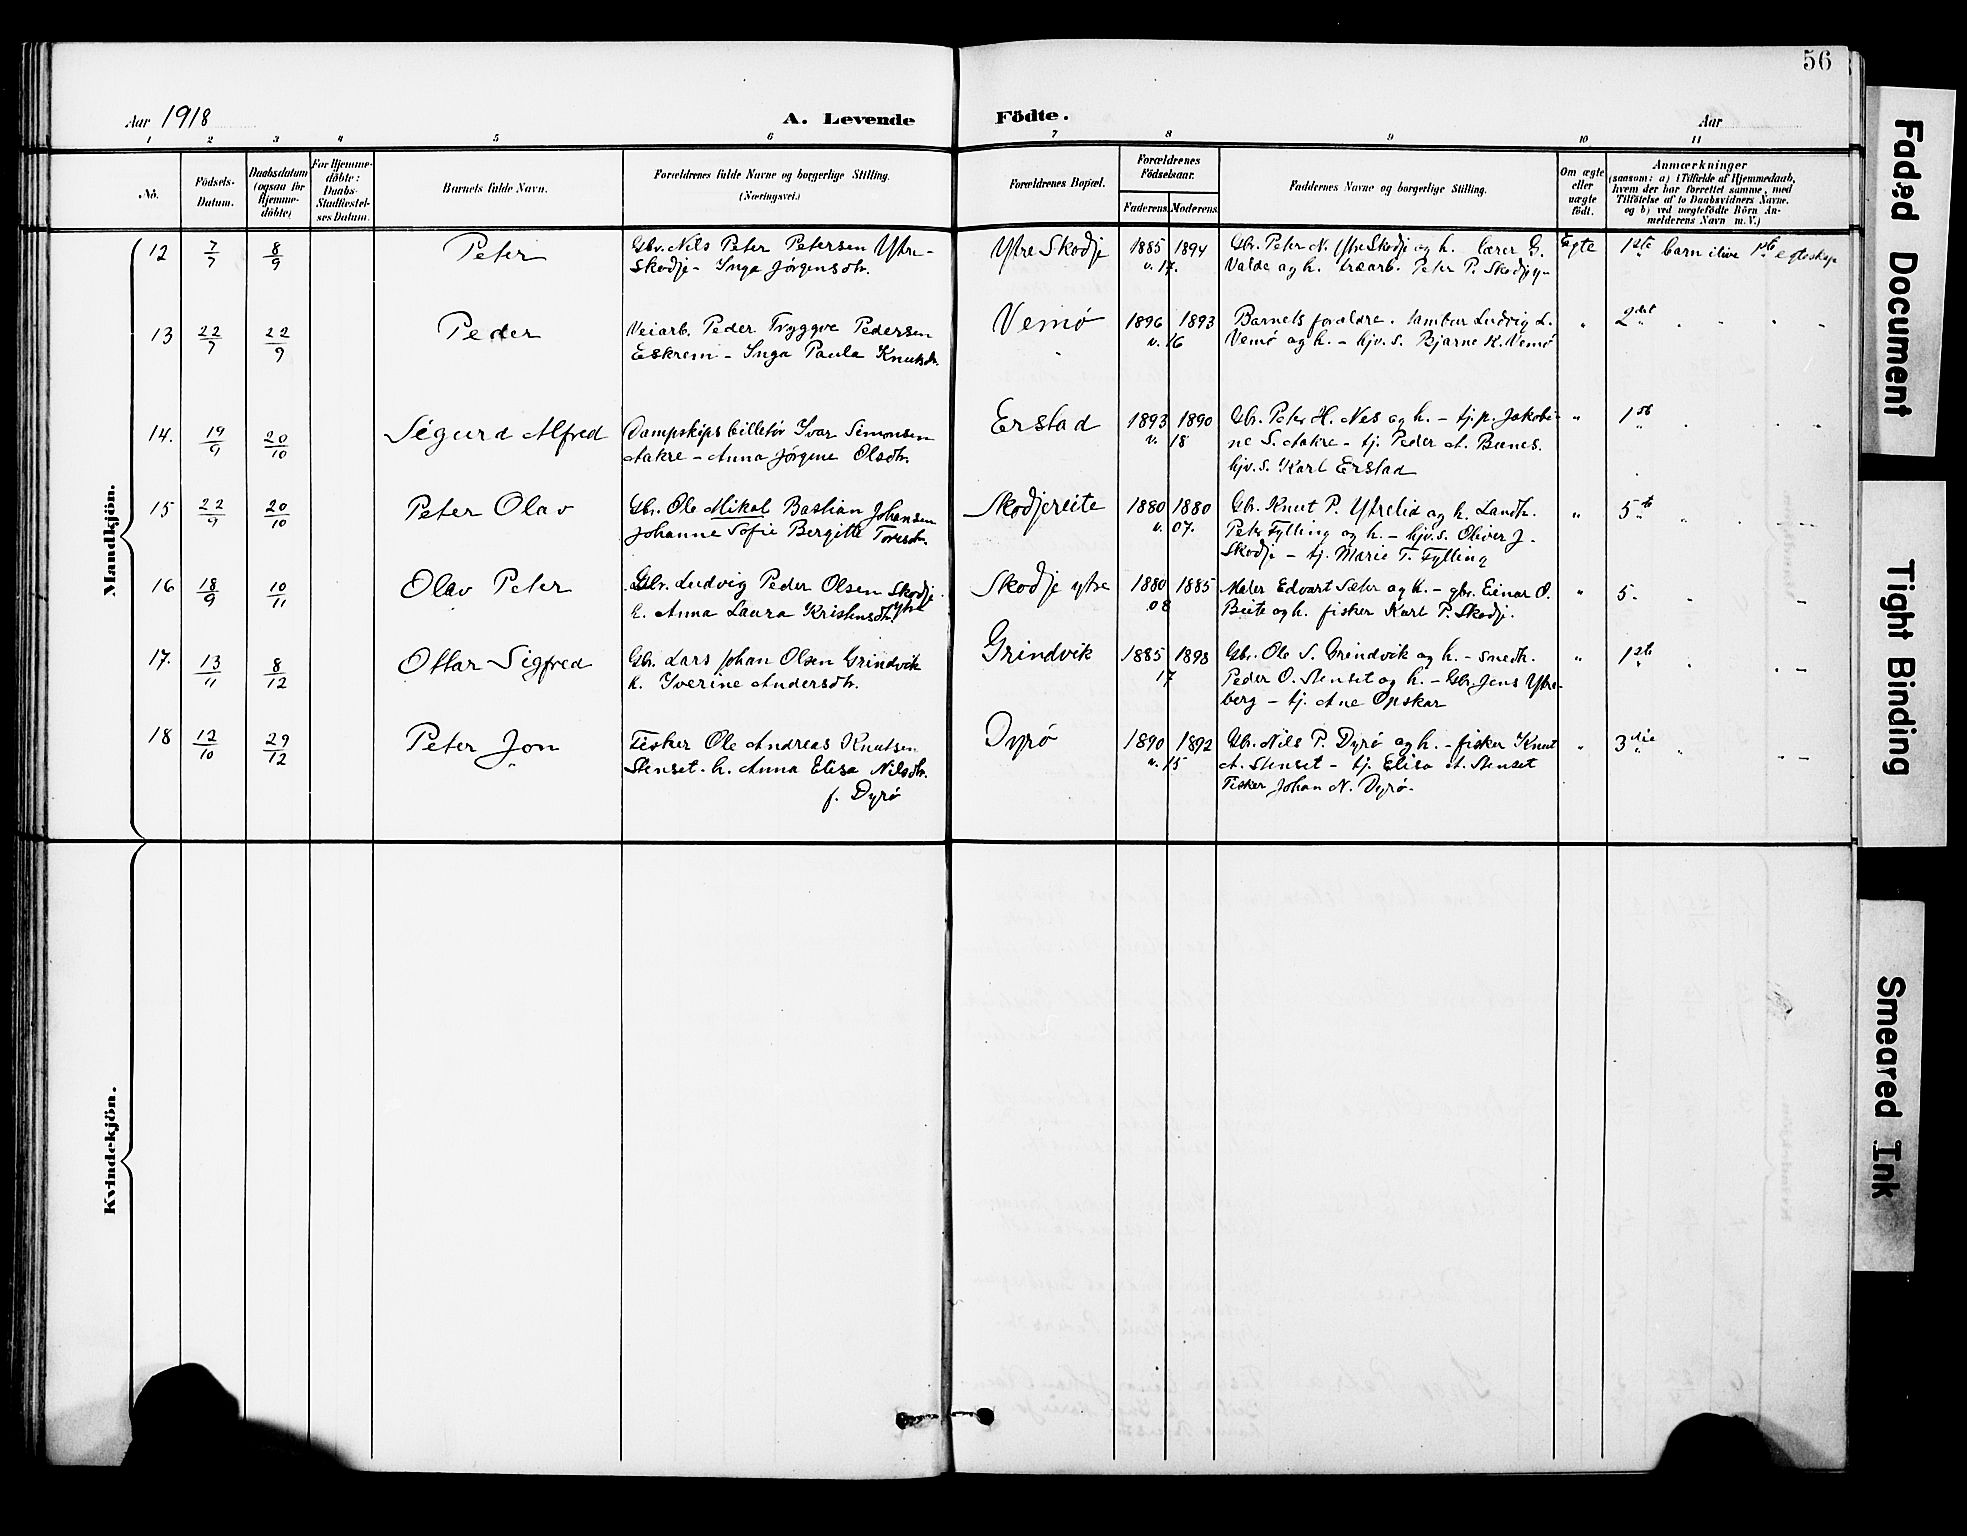 56
Aar 1918
A. Levende Födte.
Aar
1 2 3 4 5 6 7 8 9 10 11
No.
Födsels-
Datum.
Daabsdatum
(ogsaa for
Hjemme-
döbte)
For Hjemme-
döbte:
Daabs-
Stadfæstel-
ses Datum.
Barnets fulde Navn.
Forældrenes fulde Navne og borgerlige Stilling.
(Næringsvei.)
Forældrenes Bopæl.
Forældrenes
Födselsaar.
Faderens. Moderens.
Faddernes Navne og borgerlige Stilling.
Om ægte
eller
uægte
født.
Anmærkninger
(saasom: a) i Tilfælde af Hjemmedaab,
hvem der har forrettet samme, med
Tilföielse af to Daabsvidners Navne,
og b) ved uægtefödte Börn An-
melderens Navn m. V.)
Mandkjön.
12 7/7 8/9 Peter
Gbr. Nils Peter Petersen Ytre-
Skodje - Inga Jørgensdtr.
Ytre Skodje
1885 1894
v. 17.
Gbr. Peter N. Ytre Skodje og h. lærer G.
Valde og h. træarb. Peter P. Skodjey-
Egte
1ste barn i live 1ste egteskap
13 22/7 22/9 Peder
Veiarb. Peder Tryggve Pedersen
Eskrem - Inga Paula Knutsdtr.
Vemø
1896 1893
v. 16
Barnets forældre. Tambur Ludvig L.
Vemø og h. - hjv. s. Bjarne K. Vemø
" 2det " " " "
14. 19/9 20/10 Sigurd Alfred
Dampskipsbilletør Ivar Simonsen
Aakre - Anna Jørgine Olsdtr.
Erstad
1893 1890
v. 18
Gbr. Peter H. Nes og h. - tj.p. Jakobi-
ne S. Aakre - tj. Peder A. Bænes.
hjv. s. Karl Erstad
" 1st
15 22/9 20/10 Peter Olav
Gbr. Ole Mikal Bastian Johansen
Johanne Sofie Bergitte Toresdtr.
Skodjereite
1880 1880
v. 07.
Gbr. Knut P. Ytrelid og h. Landh.
Peter Fylling og h. - hjv. s. Oliver J.
Skodje - tj. Marie T. Fylling
" 5te
16 18/9 10/11 Olav Peter
Gbr. Ludvig Peder Olsen Skodje
ytre
E. Anna Laura Kristensdtr.
Skodje ytre
1880 1885
08
Maler Edvart Sæter og h. - gbr. Einar O.
Beite og h. fisker Karl P. Skodje.
" 5. " -
17. 13/11 8/12 Ottar Sigfred
Gbr. Lars Johan Olsen Grindvik
h. Iverine Andersdtr.
Grindvik
1885 1898
17
Gbr. Ole S. Grindvik og h. - snedk.
Peder O. Stenset og h. - Gbr. Jens Ytre-
berg - tj. Ane Opskar
" 1ste " . -
18 12/10 29/12 Peter Jon
Fisker Ole Andreas Knutsen
Stenset. h. Anna Elisa Nilsdtr.
f. Dyrø
Dyrø
1890 1892
v. 15
Gbr. Nils P. Dyrø og h. - fisker Knut
A. Stenset - tj. Elisa A. Stenset
Fisker Johan N. Dyrø.
" 3die " . -
Kvindekjön.
Faded Document
Tight Binding
Smeared Ink